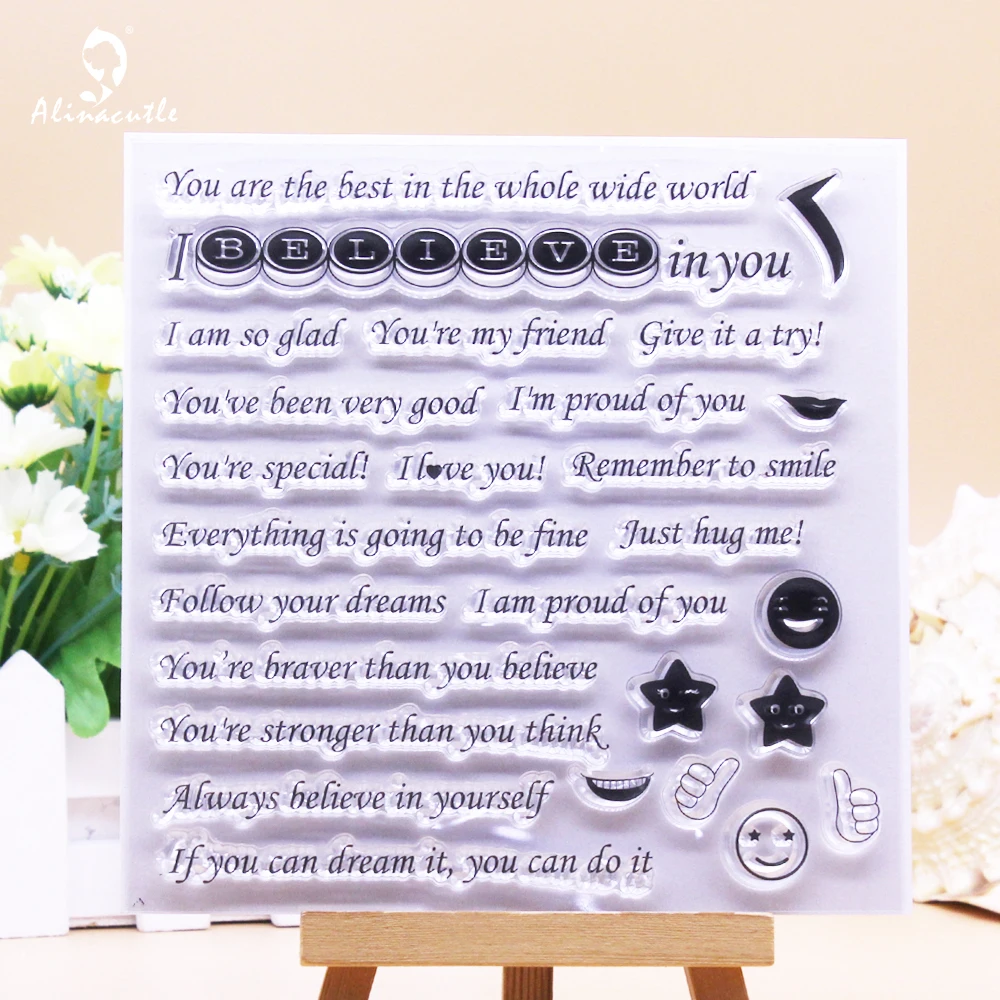 Alinacutle
You are the best in the whole wide world
I BELIEVE in you
I am so glad You're my friend Give it a try!
You've been very good I'm proud of you
You're special! I l♥ve you! Remember to smile
Everything is going to be fine Just hug me!
Follow your dreams I am proud of you
You're braver than you believe
You're stronger than you think
Always believe in yourself
If you can dream it, you can do it